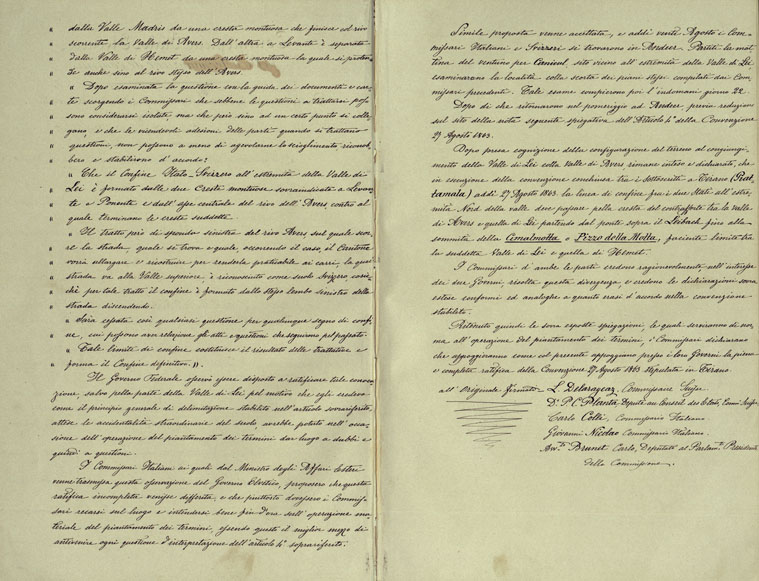 " dalla Valle Madris da una cresta montuosa che finisce sul rivo
" scorrente la Valle di Avers. Dall'altra a Levante è separata
" dalla Valle di Hemet da una cresta montuosa la quale si protra-
" le anche sino al rivo stesso dell'Avers.
" „ Dopo esaminata la questione con la guida dei documenti e car-
" te scorgendo i Commissari che sebbene le questioni a trattarsi pos-
" sono considerarsi isolate ma che però sino ad un certo punto si colle-
" gano e che le vicendevoli adesioni delle parti quando si trattano
" questioni, non possono a meno di agevolarne lo scioglimento riconob-
" bero e stabilirono d'accordo:
" „ Che il Confine Italo-Svizzero all'estremità della Valle di
" Lei è formato dalle due Creste montuose sovraindicate a Levan-
" te e Ponente e dall'asse centrale del rivo dell'Avers contro al
" quale terminano le creste suddette
" Il tratto però di sponda sinistra del rivo Avers sul quale scor-
" re la strada, quale si trova e quale, occorrendo il caso, il Cantone
" vorrà allargare e ricostruire per renderla praticabile ai carri, la qual
" strada va alla Valle superiore, è riconosciuto come suolo Svizzero, cosic-
" chè per tale tratto il confine è formato dallo stesso lembo sinistro della
" strada discendendo.
" „ Sarà cessata così qualsiasi questione per qualunque segno di confi-
" ne, cui possono aver relazione gli atti e questioni che seguirono pel passato.
" „ Tale limite di confine costituisce il risultato delle trattative e
" forma il Confine definitivo. „
Il Governo Federale erasi bensì disposto a ratificare tale conven-
zione, salvo nella parte della Valle di Lei pel motivo che egli credeva
come il principio generale di delimitazione stabilito nell'articolo sovrariferito,
attese le accidentalità straordinarie del suolo, avrebbe potuto nell'occa-
sione dell'operazione del piantamento dei termini dar luogo a dubbi e
quindi a questioni.
I Commissari Italiani ai quali dal Ministro degli Affari Esteri
venne trasmessa questa osservazione del Governo Elvetico, proposero che questa
ratifica incompleta venisse differita, e che piuttosto dovessero i Commis-
sari recarsi sul luogo e intendersi bene fin d'ora sull'operazione ma-
teriale del piantamento dei termini, essendo questo il miglior mezzo di
antivenire ogni questione d'interpretazione dell'articolo 4° sopra riferito.
Simile proposta venne accettata, e addì venti Agosto i Com-
missari Italiani e Svizzeri si trovarono in Andeer. Partiti la mat-
tina del ventuno per Canicul, sito vicino all'estremità della Valle di Lei
esaminarono la località colla scorta dei piani stessi compilati dai Com-
missari precedenti. Tale esame compierono poi l'indomani giorno 22.
Dopo di che ritornarono nel pomeriggio ad Andeer, previa redazione
sul sito della nota seguente spiegativa dell'Articolo 4° della Convenzione
27 Agosto 1863.
Dopo presa cognizione della configurazione del terreno al congiungi-
mento della Valle di Lei colla Valle di Avers rimane inteso e dichiarato, che
in esecuzione della convenzione conchiusa tra i sottoscritti a Tirano (Piat-
tamala) addì 27 Agosto 1863. la linea di confine fra i due Stati all'estre-
mità Nord della valle deve passare nella cresta del contrafforte tra la valle
di Avers e quella di Lei partendo dal ponte sopra il Leibach fino alla
sommità della Cimalmotta o Pizzo della Motta, faciente limite tra
la suddetta Valle di Lei e quella di Hemet.
I Commissari d'ambe le parti credono ragionevolmente nell'interesse
dei due Governi, risolta questa divergenza, e credono le dichiarazioni sovra
estese conformi ed analoghe a quanto erasi d'accordo nella convenzione
stabilito.
Ritenute quindi le sovra esposte spiegazioni, le quali serviranno di nor-
ma all'operazione del piantamento dei termini, i Commissari dichiarano
che appoggeranno come col presente appoggiano presso i loro Governi la piena
e completa ratifica della Convenzione 27 Agosto 1863 stipulata in Tirano
all'Originale firmato L. Delarageaz, Commissaire Suisse
Dr P. C. Planta, Député au Conseil des États, Comm. Suisse
Carlo Cotti, Commissario Italiano
Giovanni Nicolao Commissario Italiano.
Avv.to Brunet Carlo, Deputato al Parlam.to Presidente
della Commissione.